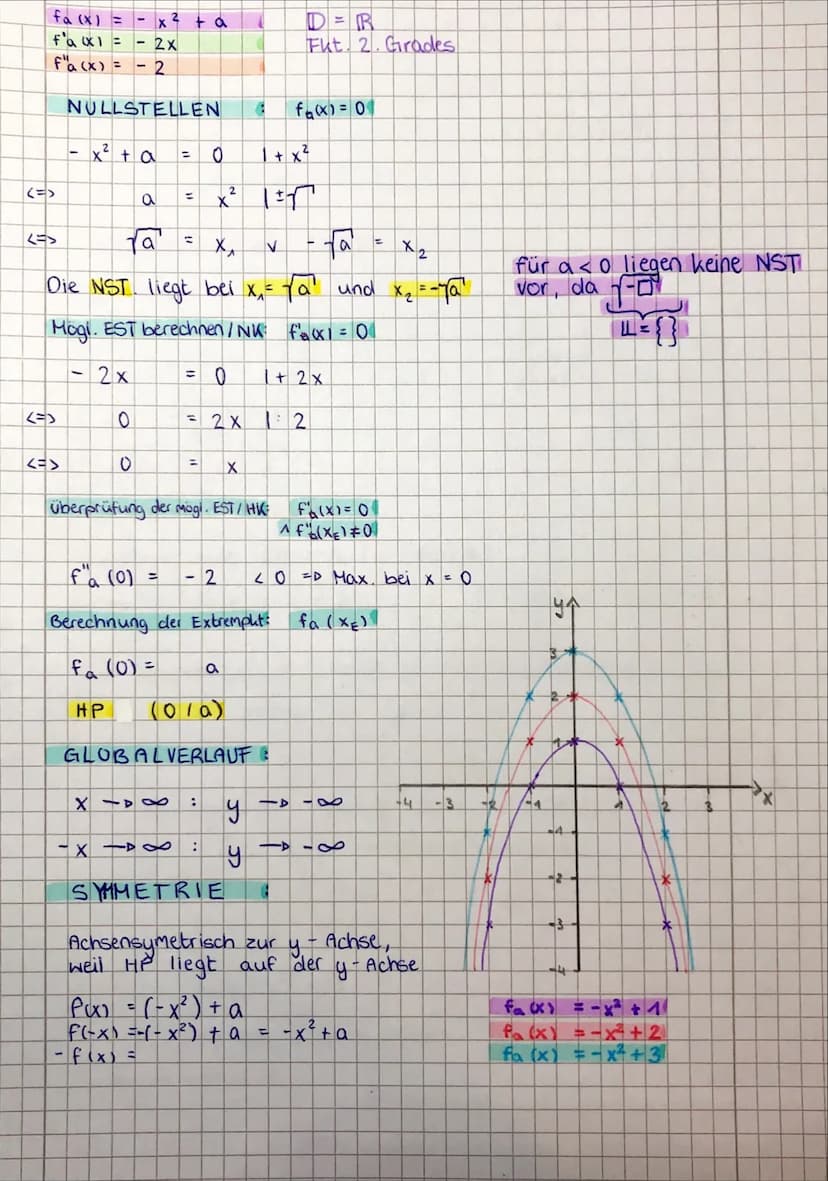 fa(x) = - x² + a
f'a(x) = - 2x
f"a(x) = - 2
𝔻 = ℝ
Fkt. 2. Grades
NULLSTELLEN : fa(x) = 0
- x² + a = 0 | + x²
<=> a = x² | ±√
<=> √a = x₁ ∨ - √a = x₂
Die NST. liegt bei x₁ = √a und x₂ = -√a
für a < 0 liegen keine NST
vor, da √-□
𝕃 = { }
Mögl. EST berechnen / NK: f'a(x) = 0
- 2x = 0 | + 2x
<=> 0 = 2x | : 2
<=> 0 = x
Überprüfung der mögl. EST / HK: f'a(x) = 0
∧ f"a(xE) ≠ 0
f"a (0) = - 2 < 0 => Max. bei x = 0
Berechnung der Extrempkt: fa (xE)
fa (0) = a
HP (0 / a)
GLOBALVERLAUF :
x → ∞ : y → -∞
- x → ∞ : y → -∞
SYMMETRIE :
Achsensymetrisch zur y - Achse,
weil HP liegt auf der y - Achse
f(x) = (-x²) + a
f(-x) = -(-x²) + a = -x² + a
- f(x) =
y
3
2
1
-4 -3 -2 -1 1 2 3 x
-1
-2
-3
-4
fa (x) = -x² + 1
fa (x) = -x² + 2
fa (x) = -x² + 3